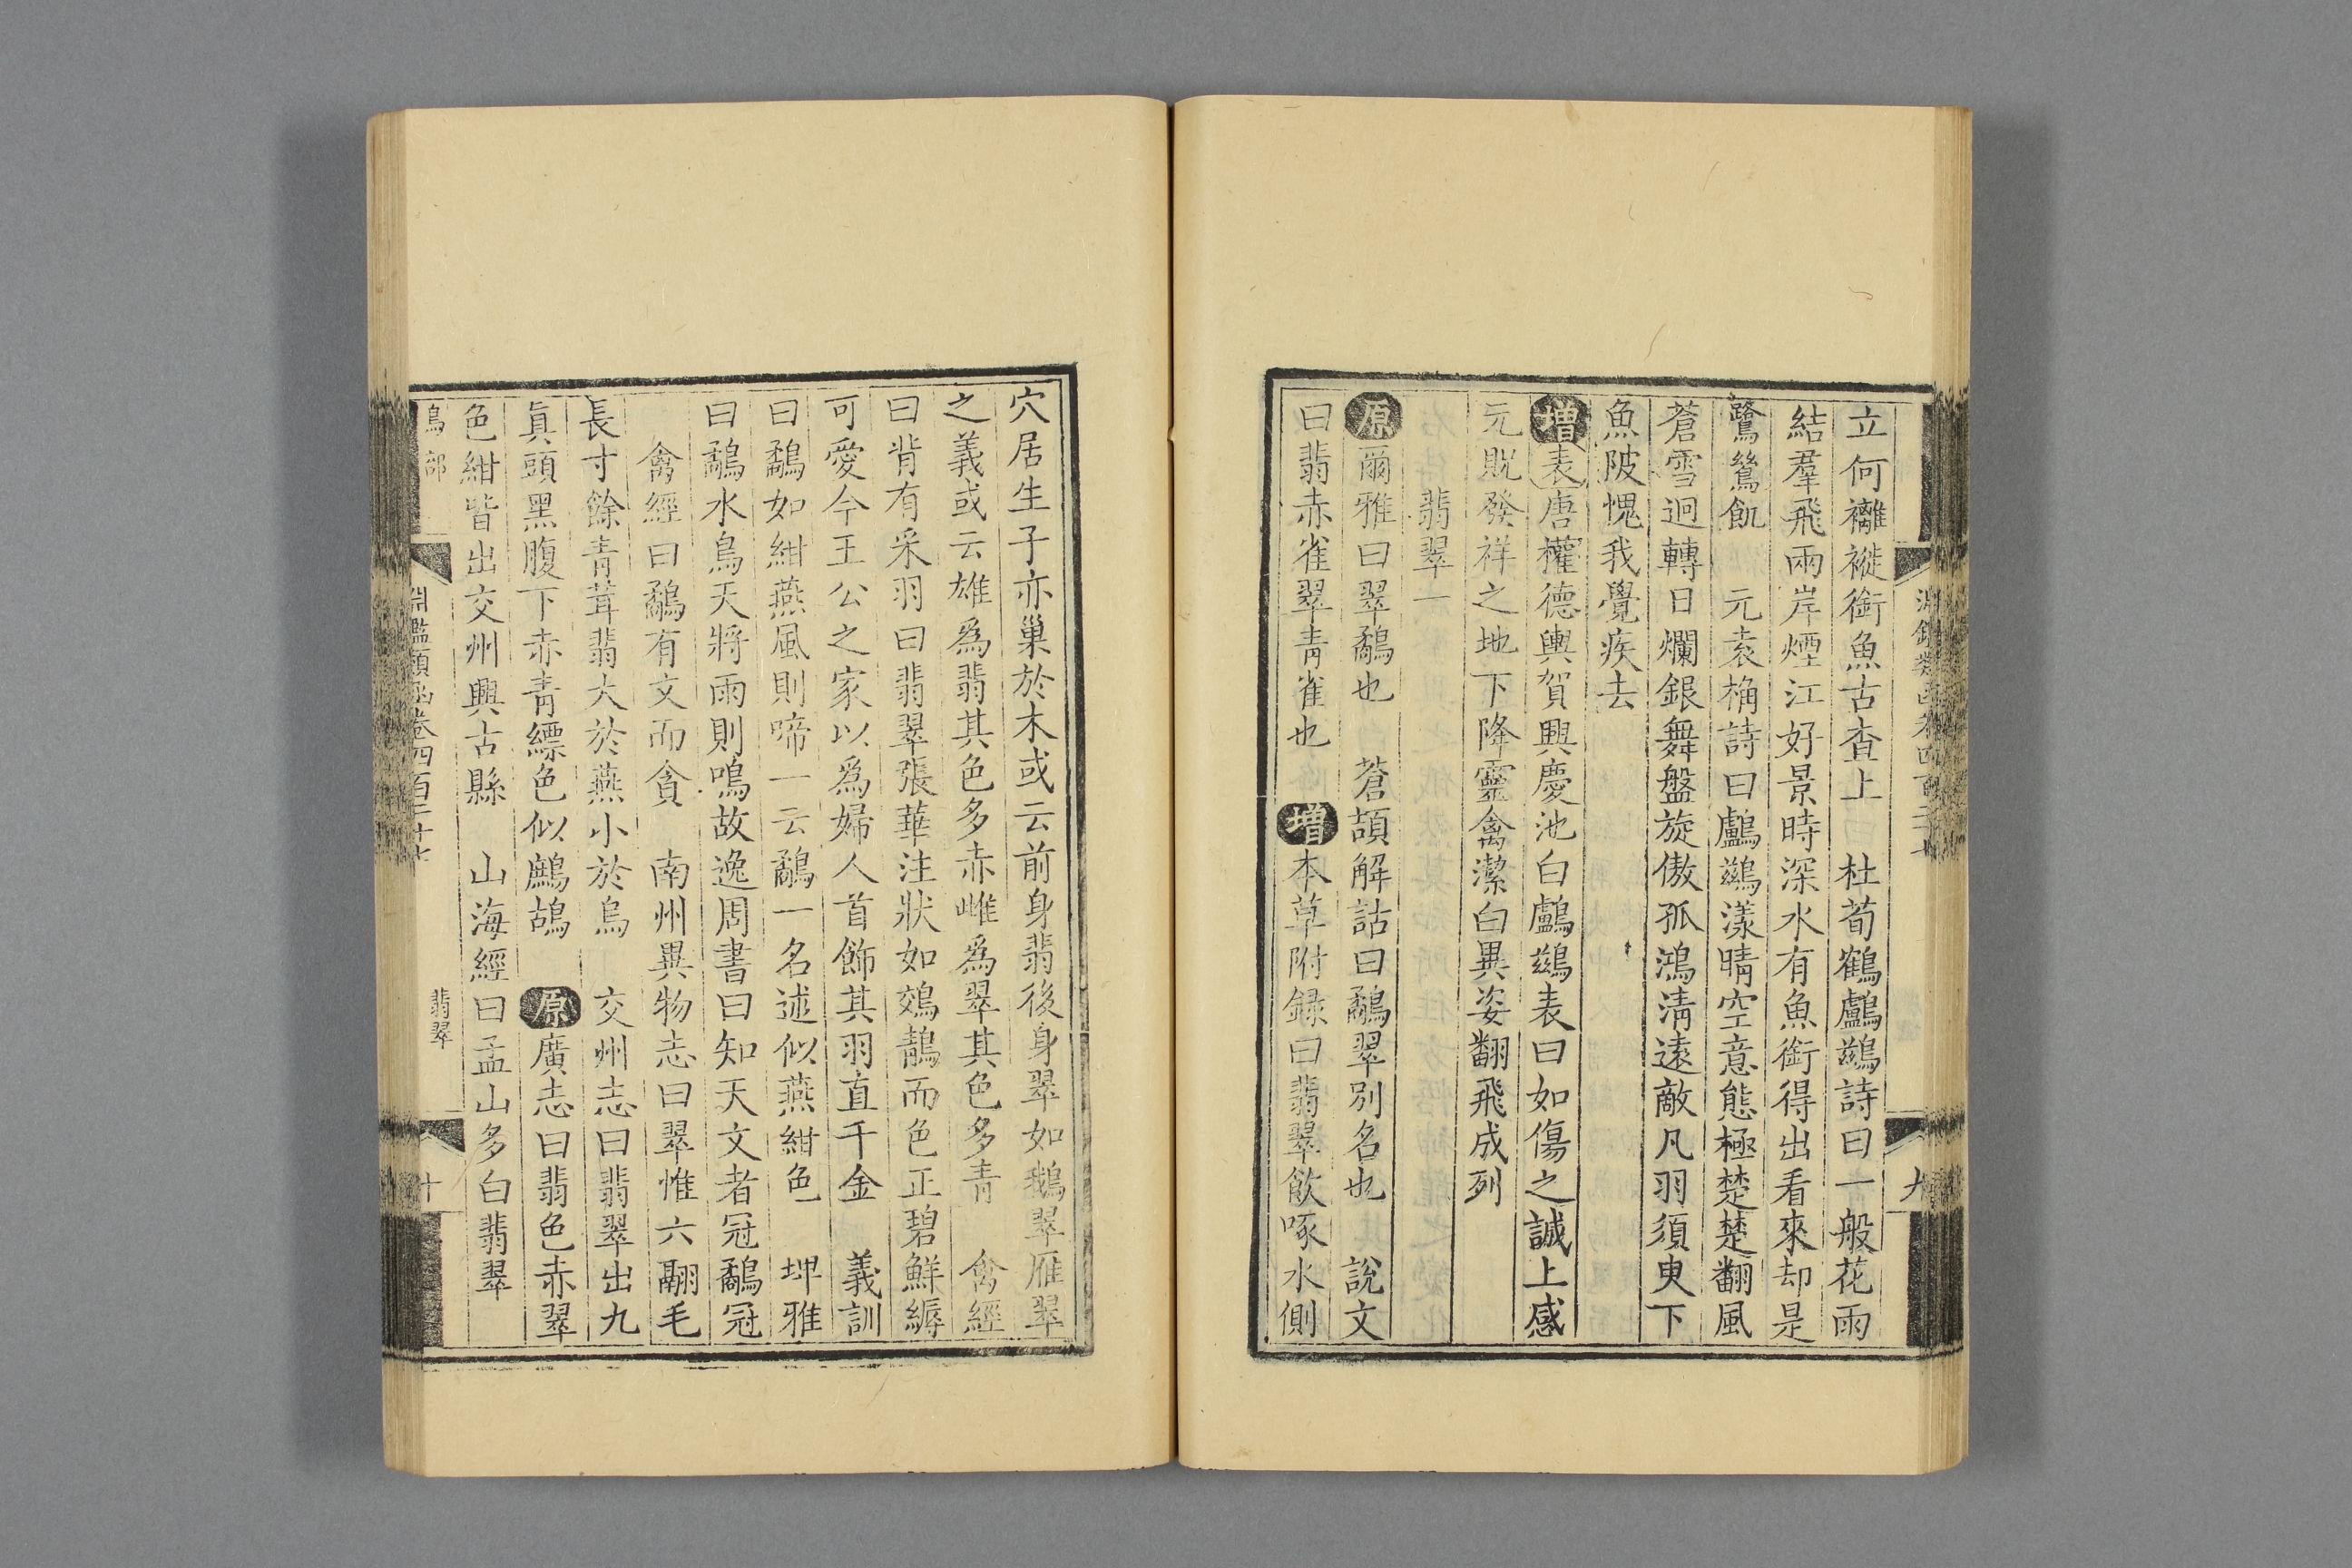 立何襳褷銜魚古查上　杜荀鶴鸕鷀詩曰一般花雨
結羣飛兩岸煙江好景時深水有魚銜得出看來却是
鷺鷥飢　元袁桷詩曰鸕鷀漾晴空意態極楚楚翻風
蒼雪迥轉日爛銀舞盤旋傲孤鴻清遠敵凡羽須臾下
魚陂愧我覺疾去
增表唐權德輿賀興慶池白鸕鷀表曰如傷之誠上感
元貺發祥之地下降靈禽潔白異姿翻飛成列
翡翠一
原爾雅曰翠鷸也　蒼頡解詁曰鷸翠別名也　說文
曰翡赤雀翠青雀也　增本草附録曰翡翠飲啄水側
淵鑑類函卷四百二十七
九
穴居生子亦巢於木或云前身翡後身翠如鵝翠雁翠
之義或云雄爲翡其色多赤雌爲翠其色多青　禽經
曰背有采羽曰翡翠張華注狀如鵁鶄而色正碧鮮縟
可愛今王公之家以爲婦人首飾其羽直千金　義訓
曰鷸如紺燕風則啼一云鷸一名述似燕紺色　埤雅
曰鷸水鳥天將雨則鳴故逸周書曰知天文者冠鷸冠
禽經曰鷸有文而貪　南州異物志曰翠惟六翮毛
長寸餘青茸翡大於燕小於烏　交州志曰翡翠出九
眞頭黑腹下赤青縹色似鷓鴣　原廣志曰翡色赤翠
色紺皆出交州興古縣　山海經曰孟山多白翡翠
鳥部
淵鑑類函卷四百二十七
翡翠
十